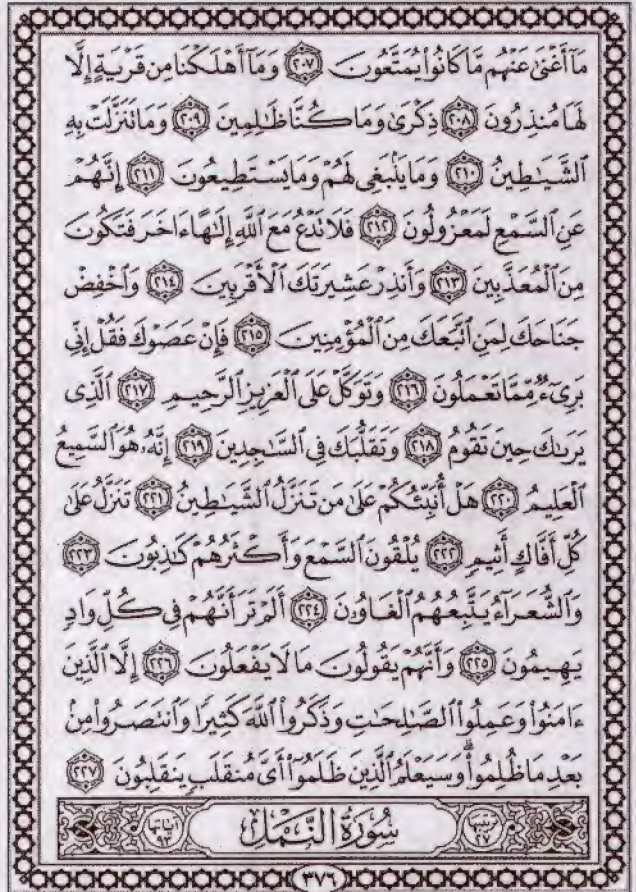 مَآ أَغْنَىٰ عَنْهُم مَّا كَانُوا۟ يُمَتَّعُونَ ﴿٢٠٧﴾ وَمَآ أَهْلَكْنَا مِن قَرْيَةٍ إِلَّا
لَهَا مُنذِرُونَ ﴿٢٠٨﴾ ذِكْرَىٰ وَمَا كُنَّا ظَـٰلِمِينَ ﴿٢٠٩﴾ وَمَا تَنَزَّلَتْ بِهِ
ٱلشَّيَـٰطِينُ ﴿٢١٠﴾ وَمَا يَنۢبَغِى لَهُمْ وَمَا يَسْتَطِيعُونَ ﴿٢١١﴾ إِنَّهُمْ
عَنِ ٱلسَّمْعِ لَمَعْزُولُونَ ﴿٢١٢﴾ فَلَا تَدْعُ مَعَ ٱللَّهِ إِلَـٰهًا ءَاخَرَ فَتَكُونَ
مِنَ ٱلْمُعَذَّبِينَ ﴿٢١٣﴾ وَأَنذِرْ عَشِيرَتَكَ ٱلْأَقْرَبِينَ ﴿٢١٤﴾ وَٱخْفِضْ
جَنَاحَكَ لِمَنِ ٱتَّبَعَكَ مِنَ ٱلْمُؤْمِنِينَ ﴿٢١٥﴾ فَإِنْ عَصَوْكَ فَقُلْ إِنِّى
بَرِىٓءٌ مِّمَّا تَعْمَلُونَ ﴿٢١٦﴾ وَتَوَكَّلْ عَلَى ٱلْعَزِيزِ ٱلرَّحِيمِ ﴿٢١٧﴾ ٱلَّذِى
يَرَىٰكَ حِينَ تَقُومُ ﴿٢١٨﴾ وَتَقَلُّبَكَ فِى ٱلسَّـٰجِدِينَ ﴿٢١٩﴾ إِنَّهُۥ هُوَ ٱلسَّمِيعُ
ٱلْعَلِيمُ ﴿٢٢٠﴾ هَلْ أُنَبِّئُكُمْ عَلَىٰ مَن تَنَزَّلُ ٱلشَّيَـٰطِينُ ﴿٢٢١﴾ تَنَزَّلُ عَلَىٰ
كُلِّ أَفَّاكٍ أَثِيمٍ ﴿٢٢٢﴾ يُلْقُونَ ٱلسَّمْعَ وَأَكْثَرُهُمْ كَـٰذِبُونَ ﴿٢٢٣﴾
وَٱلشُّعَرَآءُ يَتَّبِعُهُمُ ٱلْغَاوُۥنَ ﴿٢٢٤﴾ أَلَمْ تَرَ أَنَّهُمْ فِى كُلِّ وَادٍ
يَهِيمُونَ ﴿٢٢٥﴾ وَأَنَّهُمْ يَقُولُونَ مَا لَا يَفْعَلُونَ ﴿٢٢٦﴾ إِلَّا ٱلَّذِينَ
ءَامَنُوا۟ وَعَمِلُوا۟ ٱلصَّـٰلِحَـٰتِ وَذَكَرُوا۟ ٱللَّهَ كَثِيرًا وَٱنتَصَرُوا۟ مِنۢ
بَعْدِ مَا ظُلِمُوا۟ ۗ وَسَيَعْلَمُ ٱلَّذِينَ ظَلَمُوٓا۟ أَىَّ مُنقَلَبٍ يَنقَلِبُونَ ﴿٢٢٧﴾
ترتيبها ٢٧ سُورَةُ النَّمْلِ آياتها ٩٣
٣٧٦